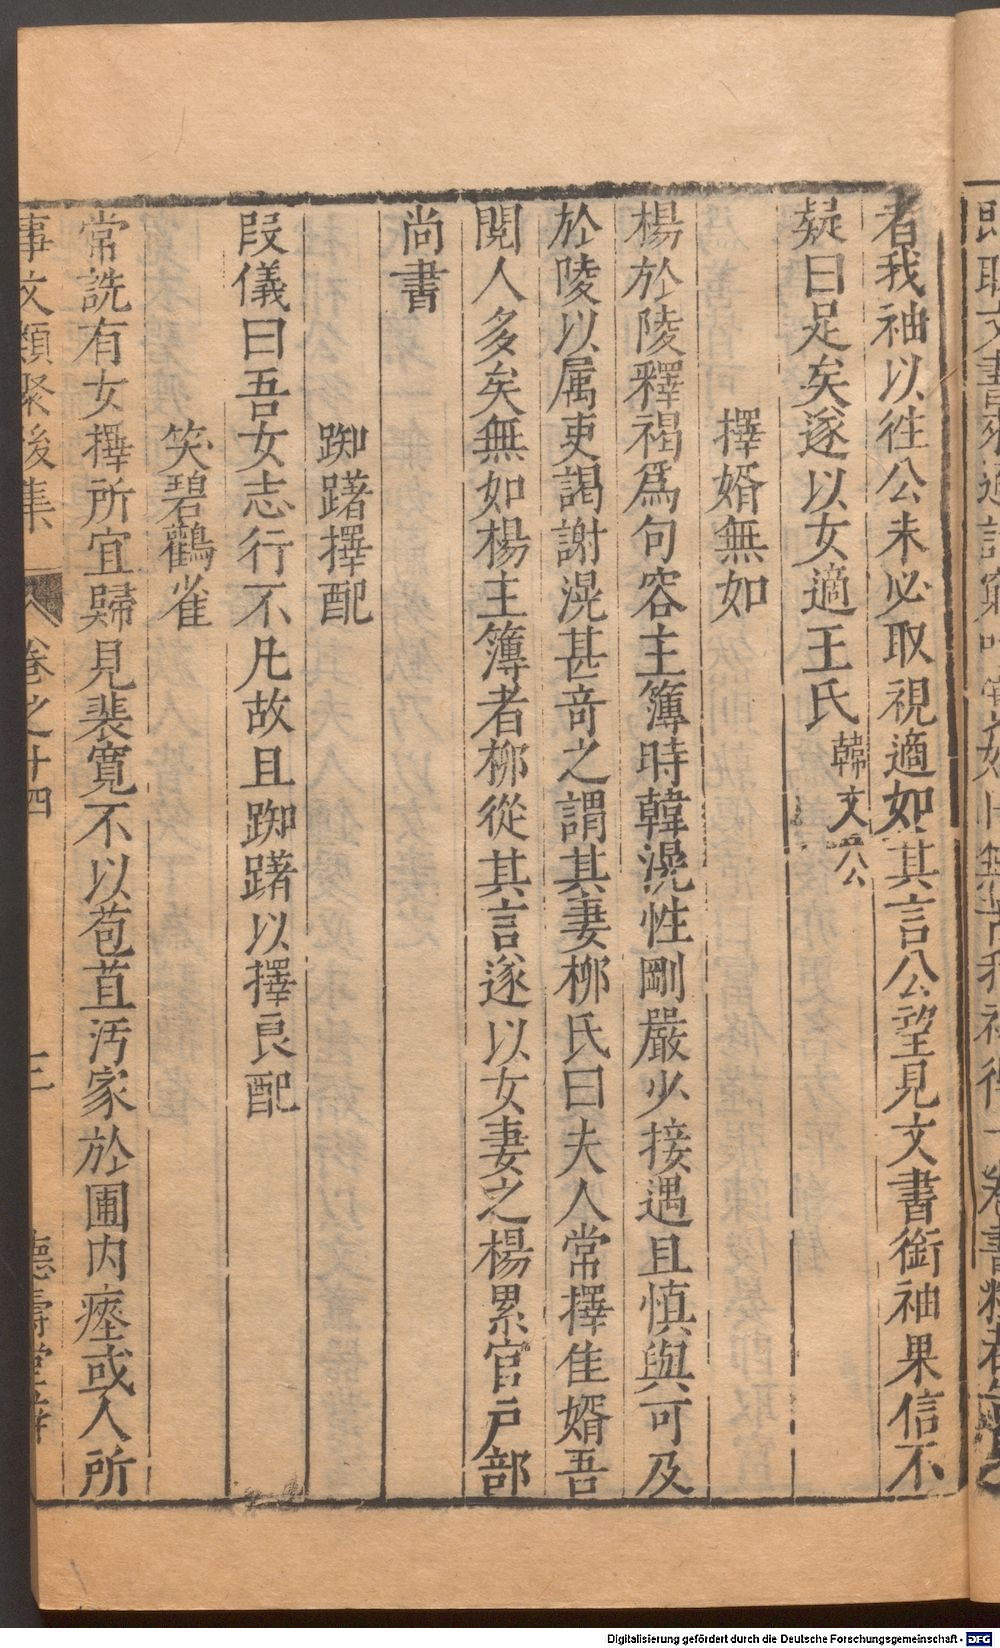 者我袖以徃公未必取視適如其言公望見文書銜袖果信不
疑曰足矣遂以女適王氏韓文公
擇婿無如
楊於陵釋褐爲句容主簿時韓滉性剛嚴少接遇且慎與可及
於陵以属吏謁謝滉甚竒之謂其妻柳氏曰夫人常擇佳婿吾
閱人多矣無如楊主簿者柳從其言遂以女妻之楊累官戸部
尚書
踟躇擇配
段儀曰吾女志行不凡故且踟躇以擇良配
笑碧鸛雀
常詵有女擇所宜歸見裴寛不以苞苴汚家於圃内瘞或人所
事文類聚後集 卷之十四 三 德壽堂梓
Digitalisierung gefördert durch die Deutsche Forschungsgemeinschaft - DFG